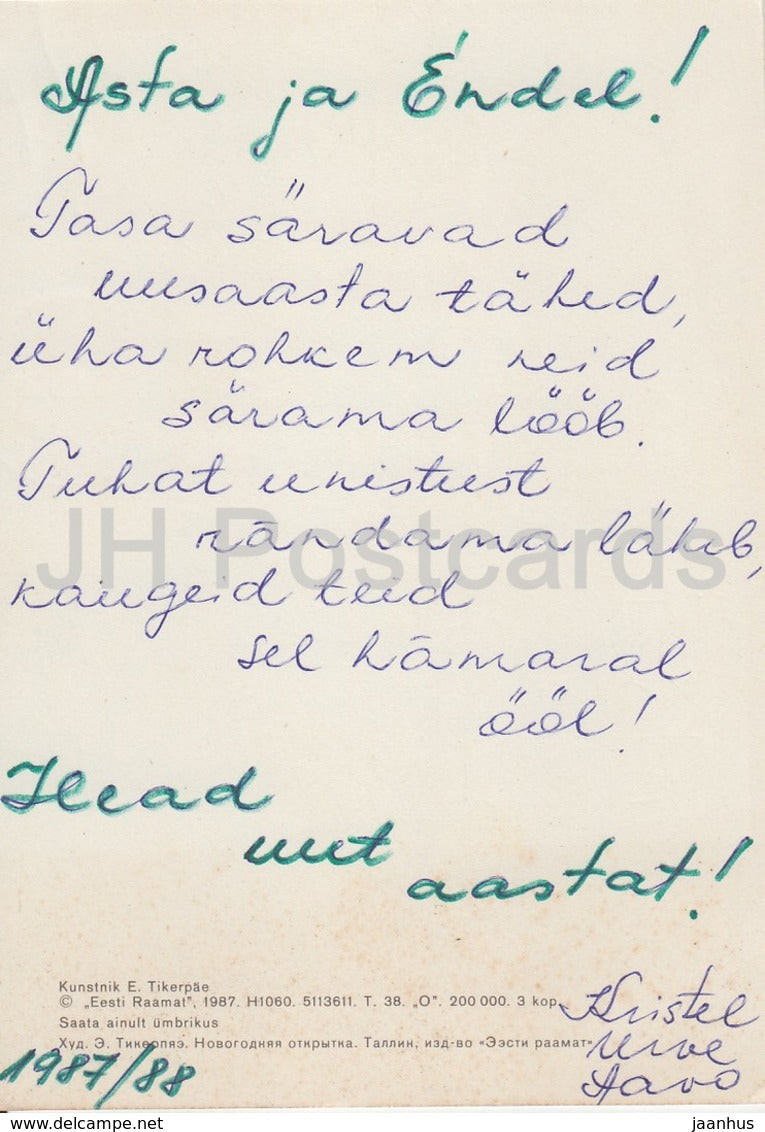 Asta ja Endel!
Tasa säravad
uusaasta tähed,
üha rohkem neid
särama lööb.
Tuhat unistust
rändama läheb,
kaugeid teid
sel hämaral
ööl!
Head
uut
aastat!
JH Postcards
Kunstnik E. Tikerpäe
© „Eesti Raamat", 1987. H1060. 5113611. T. 38. „O". 200 000. 3 kop.
Saata ainult ümbrikus
Худ. Э. Тикерпяэ. Новогодняя открытка. Таллин, изд-во «Ээсти раамат»
Kristel
Urve
Aavo
1987/88
www.delcampe.net
jaanhus